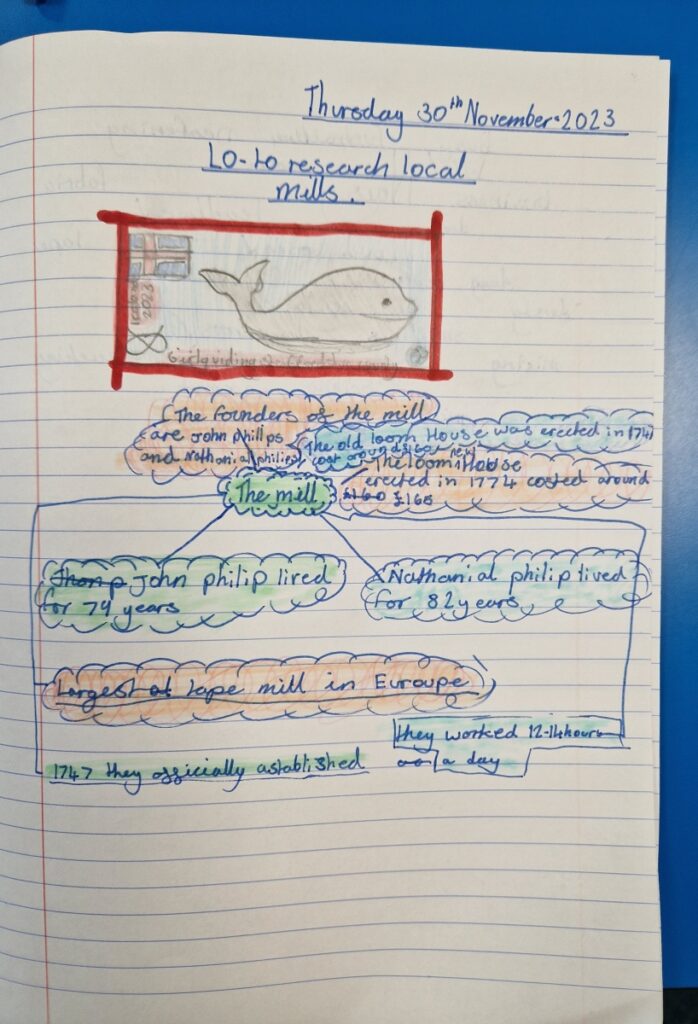 Thursday 30th November 2023
LO-to research local
mills.
2023
(The founders of the mill
are John Phillps
and Nathanial philips
The old loom House was erected in 174
cost around
The loom House
erected in 1774 costed around
£160 £165
The mill
John philip lived
for 79 years
Nathanial philip lived
for 82 years
Largest of tape mill in Euroupe
1747 they officially astablished
they worked 12-14 hours
a day